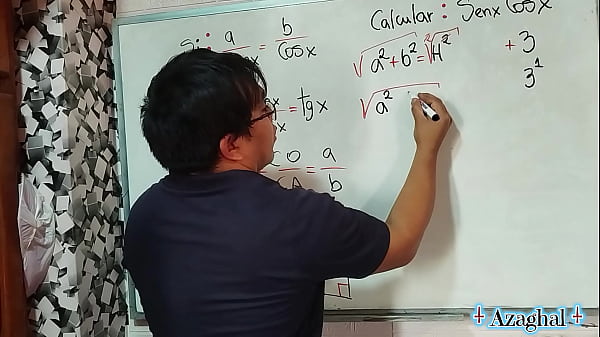 Calcular: Senx Cosx
Si: a/ = b/Cosx
√a²+b² = ²√H²
+3
3¹
= tgx
√a²
CO = a/b
CA
+ Azaghal +